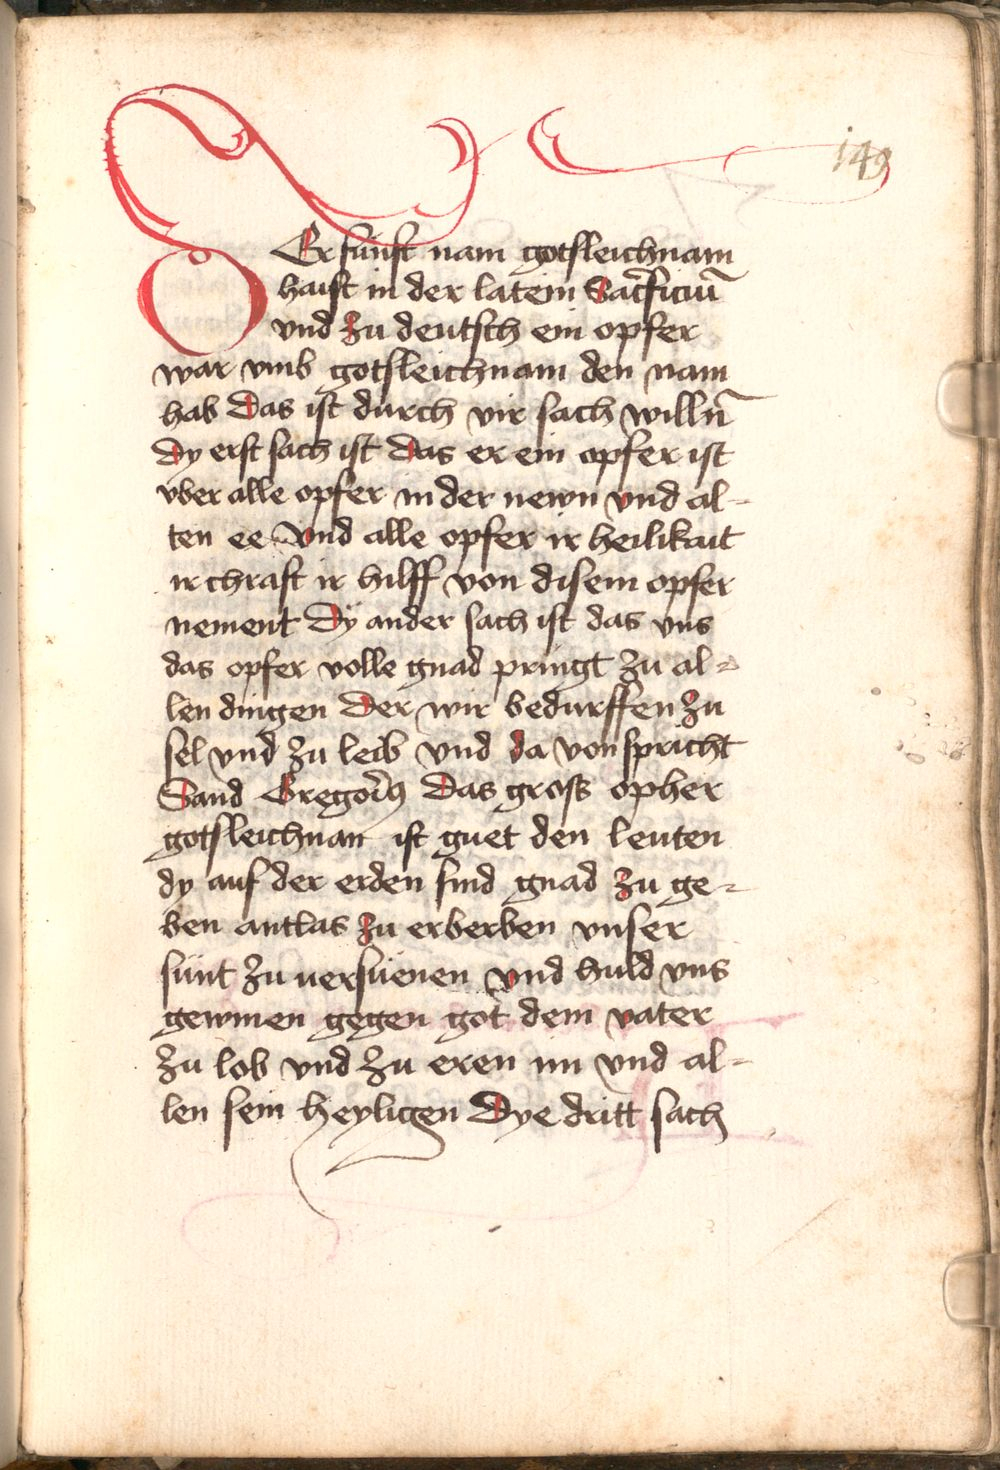 149
DEr funft nam gotsleichnam
haist in der latein Sacrificiu̅
vnd zu deutsch ein opfer
war vmb gotsleichnam den nam
hab Das ist durch vir sach willn̅
Dy erst sach ist Das er ein opfer ist
vber alle opfer in der newn vnd al-
ten ee Vnd alle opfer ir heilikait
ir chraft ir hilff von disem opfer
nement Dÿ ander sach ist das vns
das opfer volle gnad pringt zu al-
len dingen Der wir bedurffen zu
sel vnd zu leib vnd da von spricht
Sand Gregorius Das gross opher
gotsleichnam ist guet den leuten
dy auf der erden sind gnad zu ge-
ben antlas zu erberben vnser
sünt zu uersüenen vnd huld vns
gewinen gegen got dem vater
zu lob vnd zu eren im vnd al-
len sein heyligen Dye dritt sach